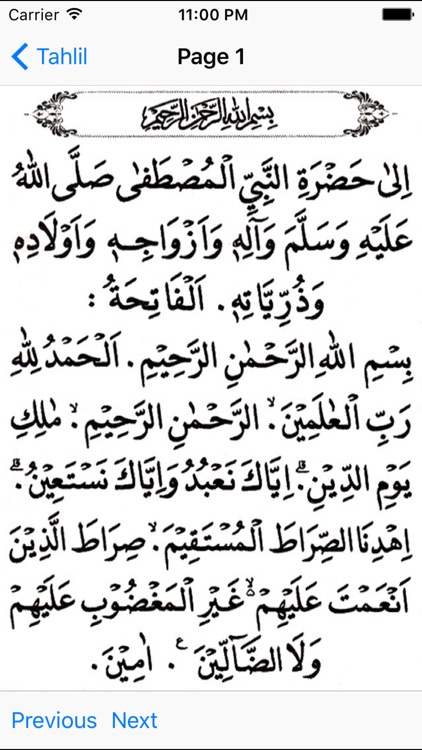 Carrier 11:00 PM
Tahlil Page 1
بِسْمِ اللهِ الرَّحْمٰنِ الرَّحِيْمِ
اِلٰى حَضْرَةِ النَّبِيِّ الْمُصْطَفٰى صَلَّى اللهُ
عَلَيْهِ وَسَلَّمَ وَآلِهٖ وَاَزْوَاجِهٖ وَاَوْلَادِهٖ
وَذُرِّيَّاتِهٖ. اَلْفَاتِحَةُ :
بِسْمِ اللهِ الرَّحْمٰنِ الرَّحِيْمِ. اَلْحَمْدُ لِلّٰهِ
رَبِّ الْعٰلَمِيْنَۙ. الرَّحْمٰنِ الرَّحِيْمِۙ. مٰلِكِ
يَوْمِ الدِّيْنِۗ. اِيَّاكَ نَعْبُدُ وَاِيَّاكَ نَسْتَعِيْنُۗ.
اِهْدِنَا الصِّرَاطَ الْمُسْتَقِيْمَۙ. صِرَاطَ الَّذِيْنَ
اَنْعَمْتَ عَلَيْهِمْۙ۬ غَيْرِ الْمَغْضُوْبِ عَلَيْهِمْ
وَلَا الضَّآلِّيْنَ ࣖ. اٰمِيْنَ.
Previous Next